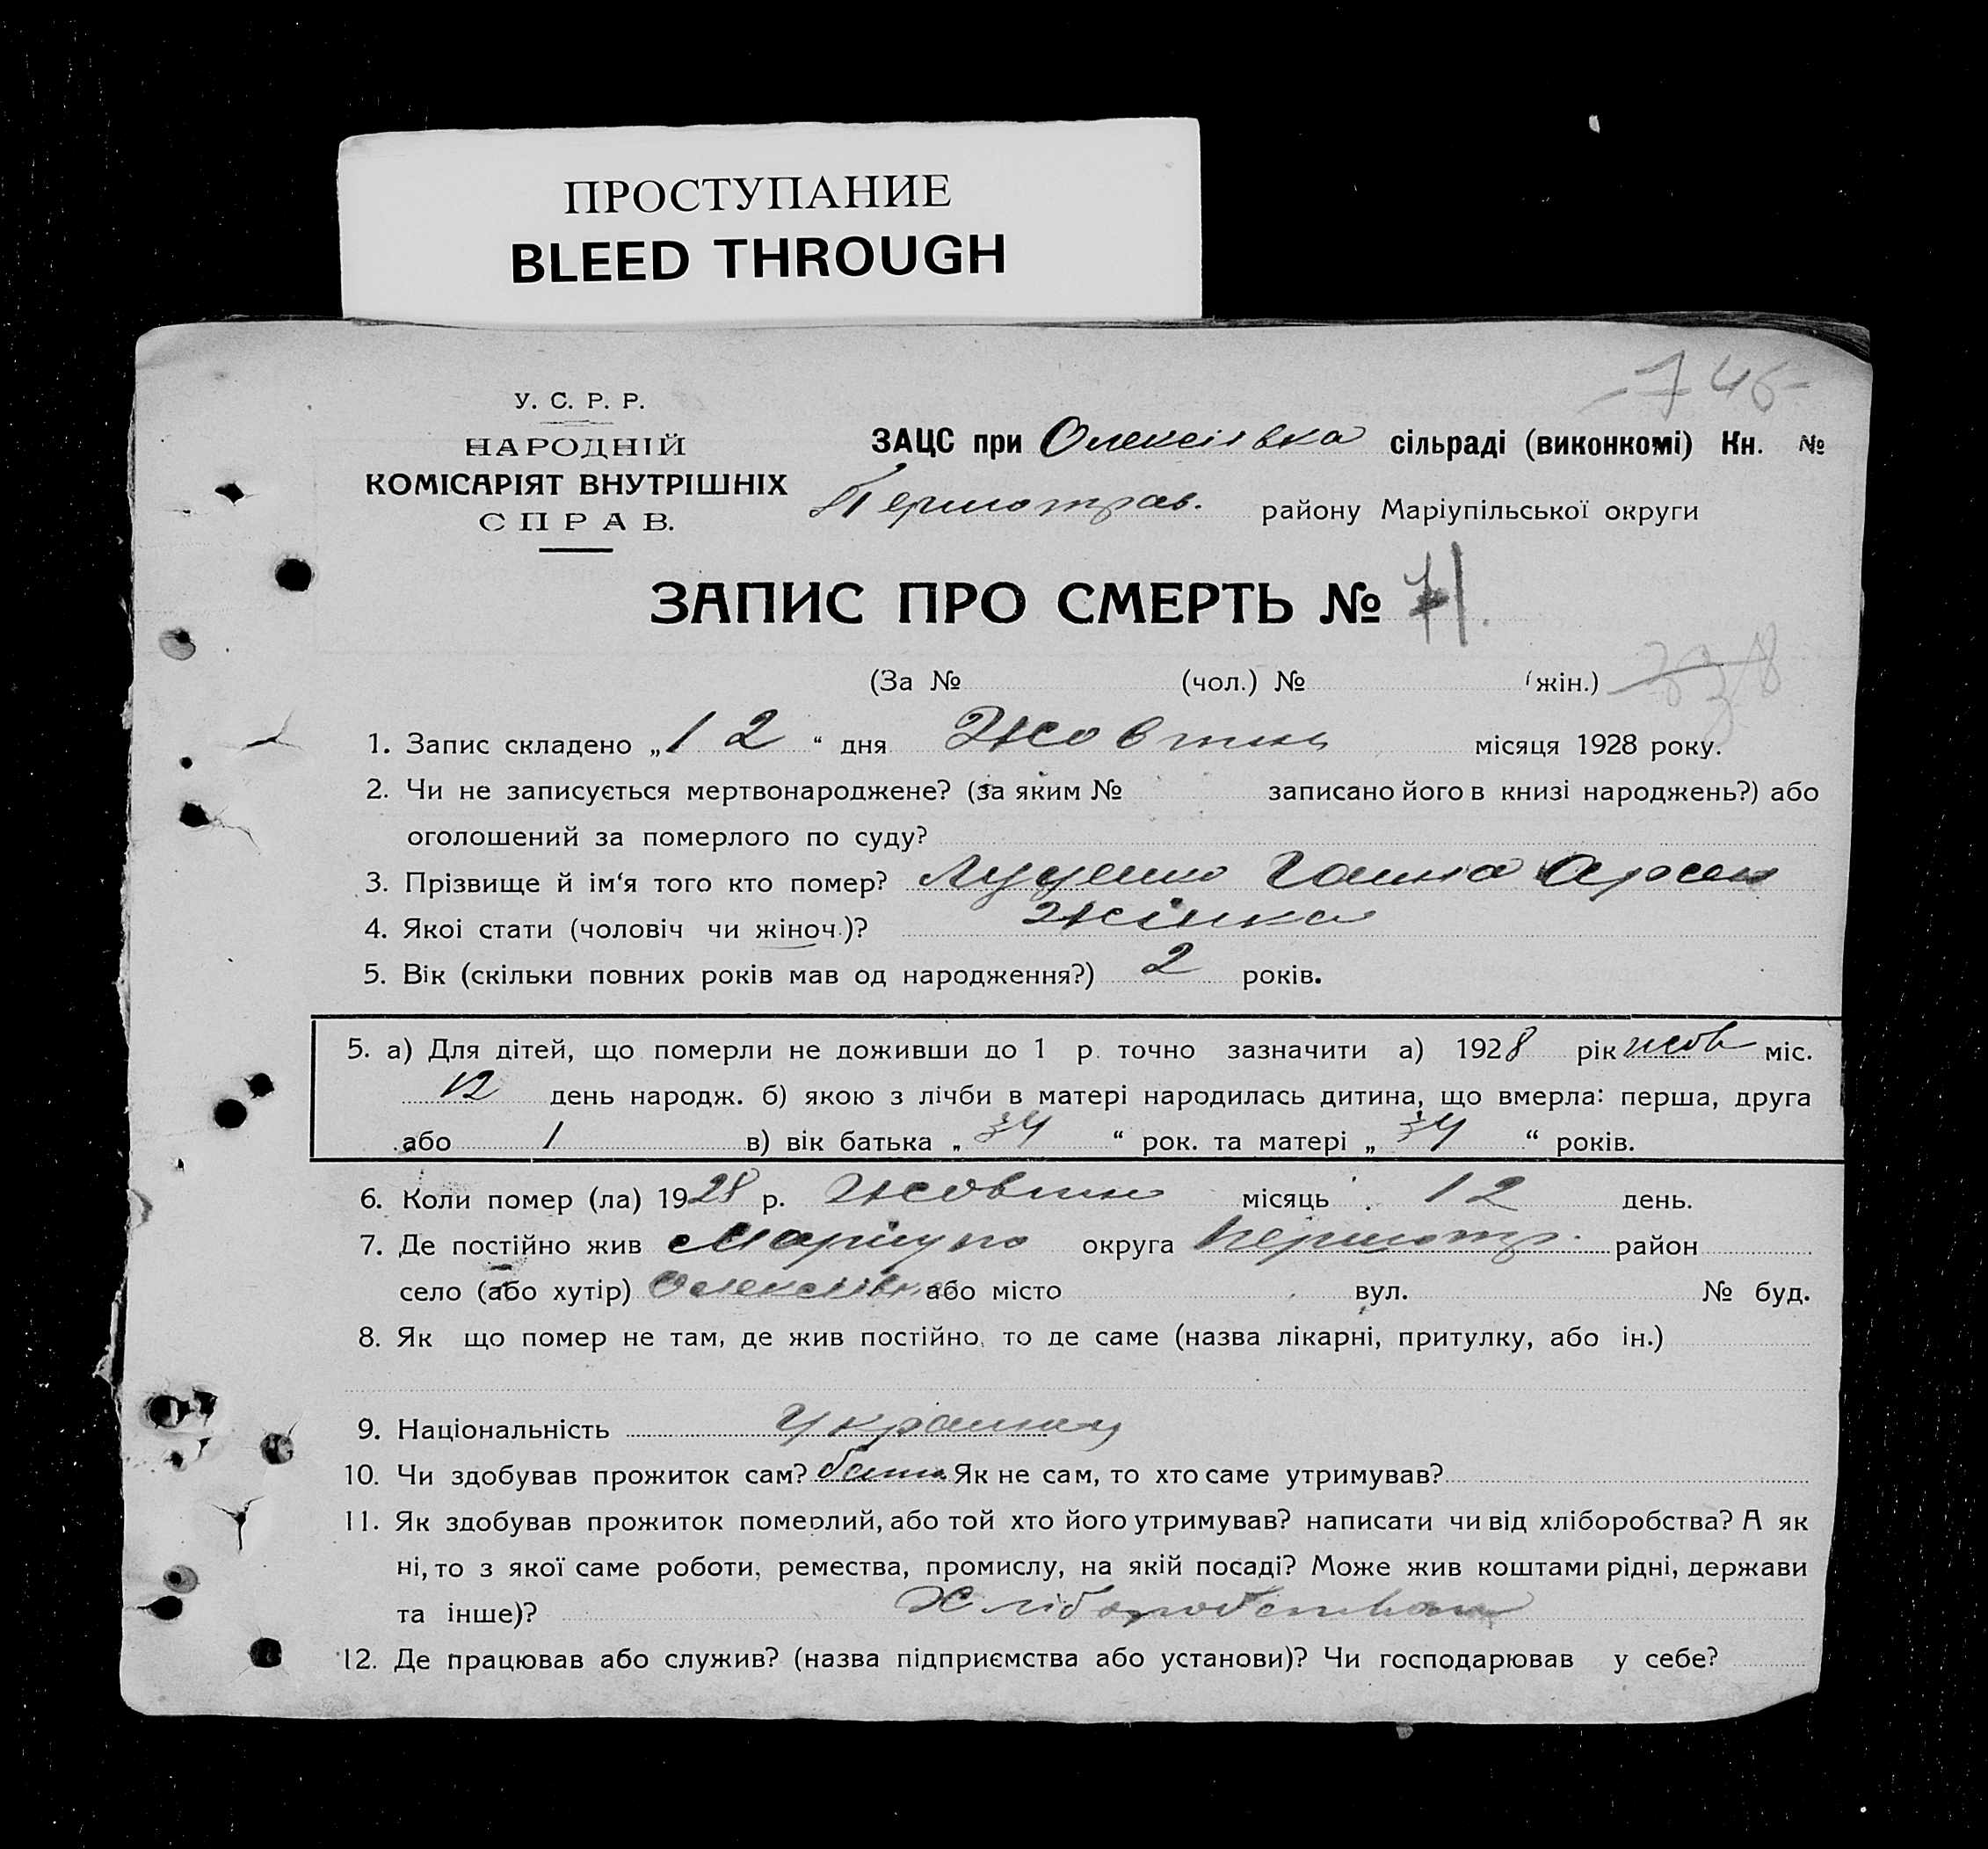 ПРОСТУПАНИЕ
BLEED THROUGH
746
У. С. Р. Р.
НАРОДНІЙ
КОМІСАРІЯТ ВНУТРІШНІХ
СПРАВ.
ЗАЦС при Олексіївка сільраді (виконкомі) Кн. №
Першотрав. району Маріупільської округи
ЗАПИС ПРО СМЕРТЬ № 71.
(За № (чол.) № (жін.) 338
1. Запис складено „12“ дня Жовтня місяця 1928 року.
2. Чи не записується мертвонароджене? (за яким № записано його в книзі народжень?) або
оголошений за померлого по суду?
3. Прізвище й ім‘я того кто помер? Луценко Ганна Арсен
4. Якоі стати (чоловіч чи жіноч.)? жінка
5. Вік (скільки повних років мав од народження?) 2 років.
5. а) Для дітей, що померли не доживши до 1 р. точно зазначити а) 1928 рік жов міс.
12 день народж. б) якою з лічби в матері народилась дитина, що вмерла: перша, друга
або 1 в) вік батька „34“ рок. та матері „34“ років.
6. Коли помер (ла) 1928 р. Жовтня місяць 12 день.
7. Де постійно жив Маріупо округа Першотр. район
село (або хутір) Олексіївка або місто вул. № буд.
8. Як що помер не там, де жив постійно, то де саме (назва лікарні, притулку, або ін.)
9. Національність
10. Чи здобував прожиток сам? Як не сам, то хто саме утримував?
11. Як здобував прожиток померлий, або той хто його утримував? написати чи від хліборобства? А як
ні, то з якої саме роботи, ремества, промислу, на якій посаді? Може жив коштами рідні, держави
та інше)? Хліборобством
12. Де працював або служив? (назва підприємства або установи)? Чи господарював у себе?